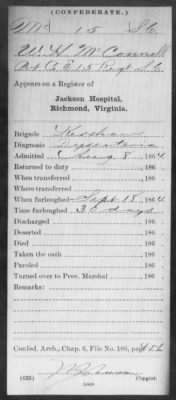 (CONFEDERATE.)
M 15 S.C.
W. H. McConnell
Pvt Co. E. 15 Regt S.C.
Appears on a Register of
Jackson Hospital,
Richmond, Virginia.
Brigade Kershaw
Diagnosis Dysenteria
Admitted Aug 8, 1864.
Returned to duty , 186 .
When transferred , 186 .
Where transferred
When furloughed Sept. 18, 1864.
Time furloughed 30 days
Discharged , 186 .
Deserted , 186 .
Died , 186 .
Taken the oath , 186 .
Paroled , 186 .
Turned over to Prov. Marshal , 186 .
Remarks:
Confed. Arch., Chap. 6, File No. 186, page
(635) Copyist.